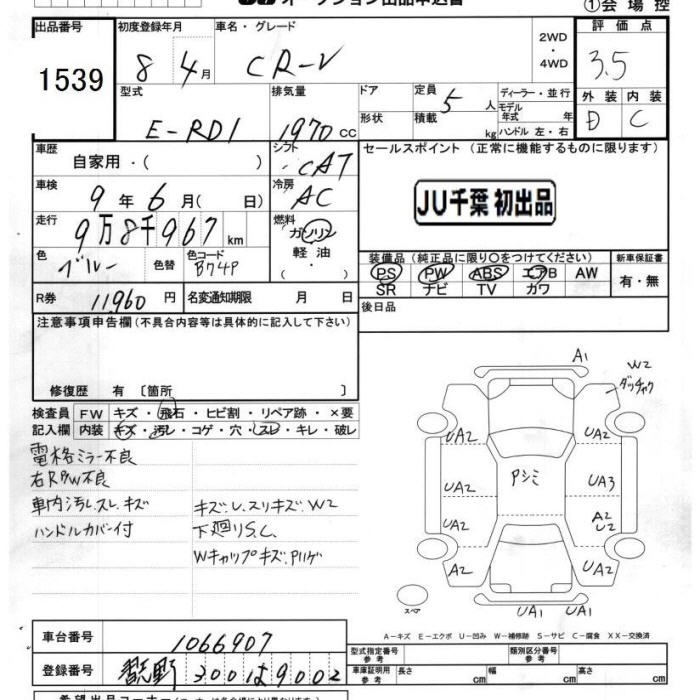 オークション出品申込書
①会場控
出品番号
1539
初度登録年月
8年 4月
車名・グレード
CR-V
2WD
・
4WD
評価点
3.5
外装 内装
D C
型式
E-RD1
排気量
1970 cc
ドア
定員
5人
形状
積載
kg
ディーラー・並行
モデル年式 年
ハンドル 左・右
車歴
自家用・( )
シフト
CAT
車検
9年 6月 ( 日)
冷房
AC
走行
9万8千967 km
燃料
ガソリン
軽油
色
ブルー
色替
色コード
B74P
R券
11,960円
名変通知期限 月 日
セールスポイント (正常に機能するものに限ります)
JU千葉 初出品
装備品 (純正品に限り○をつけてください)
PS PW ABS エアB AW
SR ナビ TV カワ
新車保証書
有・無
後日品
注意事項申告欄 (不具合内容等は具体的に記入して下さい)
修復歴 有 〔箇所 〕
検査員記入欄
FW キズ・飛石・ヒビ割・リペア跡・×要
内装 キズ・汚レ・コゲ・穴・スレ・キレ・破レ
電格ミラー不良
右RP/W不良
車内汚レ.スレ.キズ
ハンドルカバー付
キズ.U.スリキズ.W2
下廻りS.C.
Wキャップキズ.Pハゲ
A1
W2
ダッチャク
UA2 UA2
Pシミ
UA2 UA3
UA2 A2
U2
A2 UA2
スペア
UA1 UA1
A－キズ E－エクボ U－凹み W－補修跡 S－サビ C－腐食 XX－交換済
車台番号
1066907
登録番号
300 は 9002
型式指定番号
参考
類別区分番号
参考
車庫証明用
参考
長さ cm 幅 cm 高さ cm